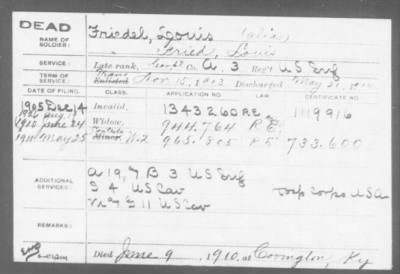 DEAD
NAME OF SOLDIER: Friedel, Louis (alias)
" Fried, Louis
SERVICE: Late rank, Co. A 3 Reg't US Inf
TERM OF SERVICE: Enlisted Nov. 15, 1903 Discharged May 21, 1910
DATE OF FILING. CLASS. APPLICATION NO. LAW. CERTIFICATE NO.
1905 Dec 14 Invalid, 1343260 1119916
1910 June 24 Widow, 944.764
1911 May 25 Minor, W-2 965.805 733.600
ADDITIONAL SERVICES: A 19, 7 B 3 US Inf
S 4 US Cav Hosp Corps USA
11 US Cav
REMARKS:
Died June 9, 1910, at Covington, Ky